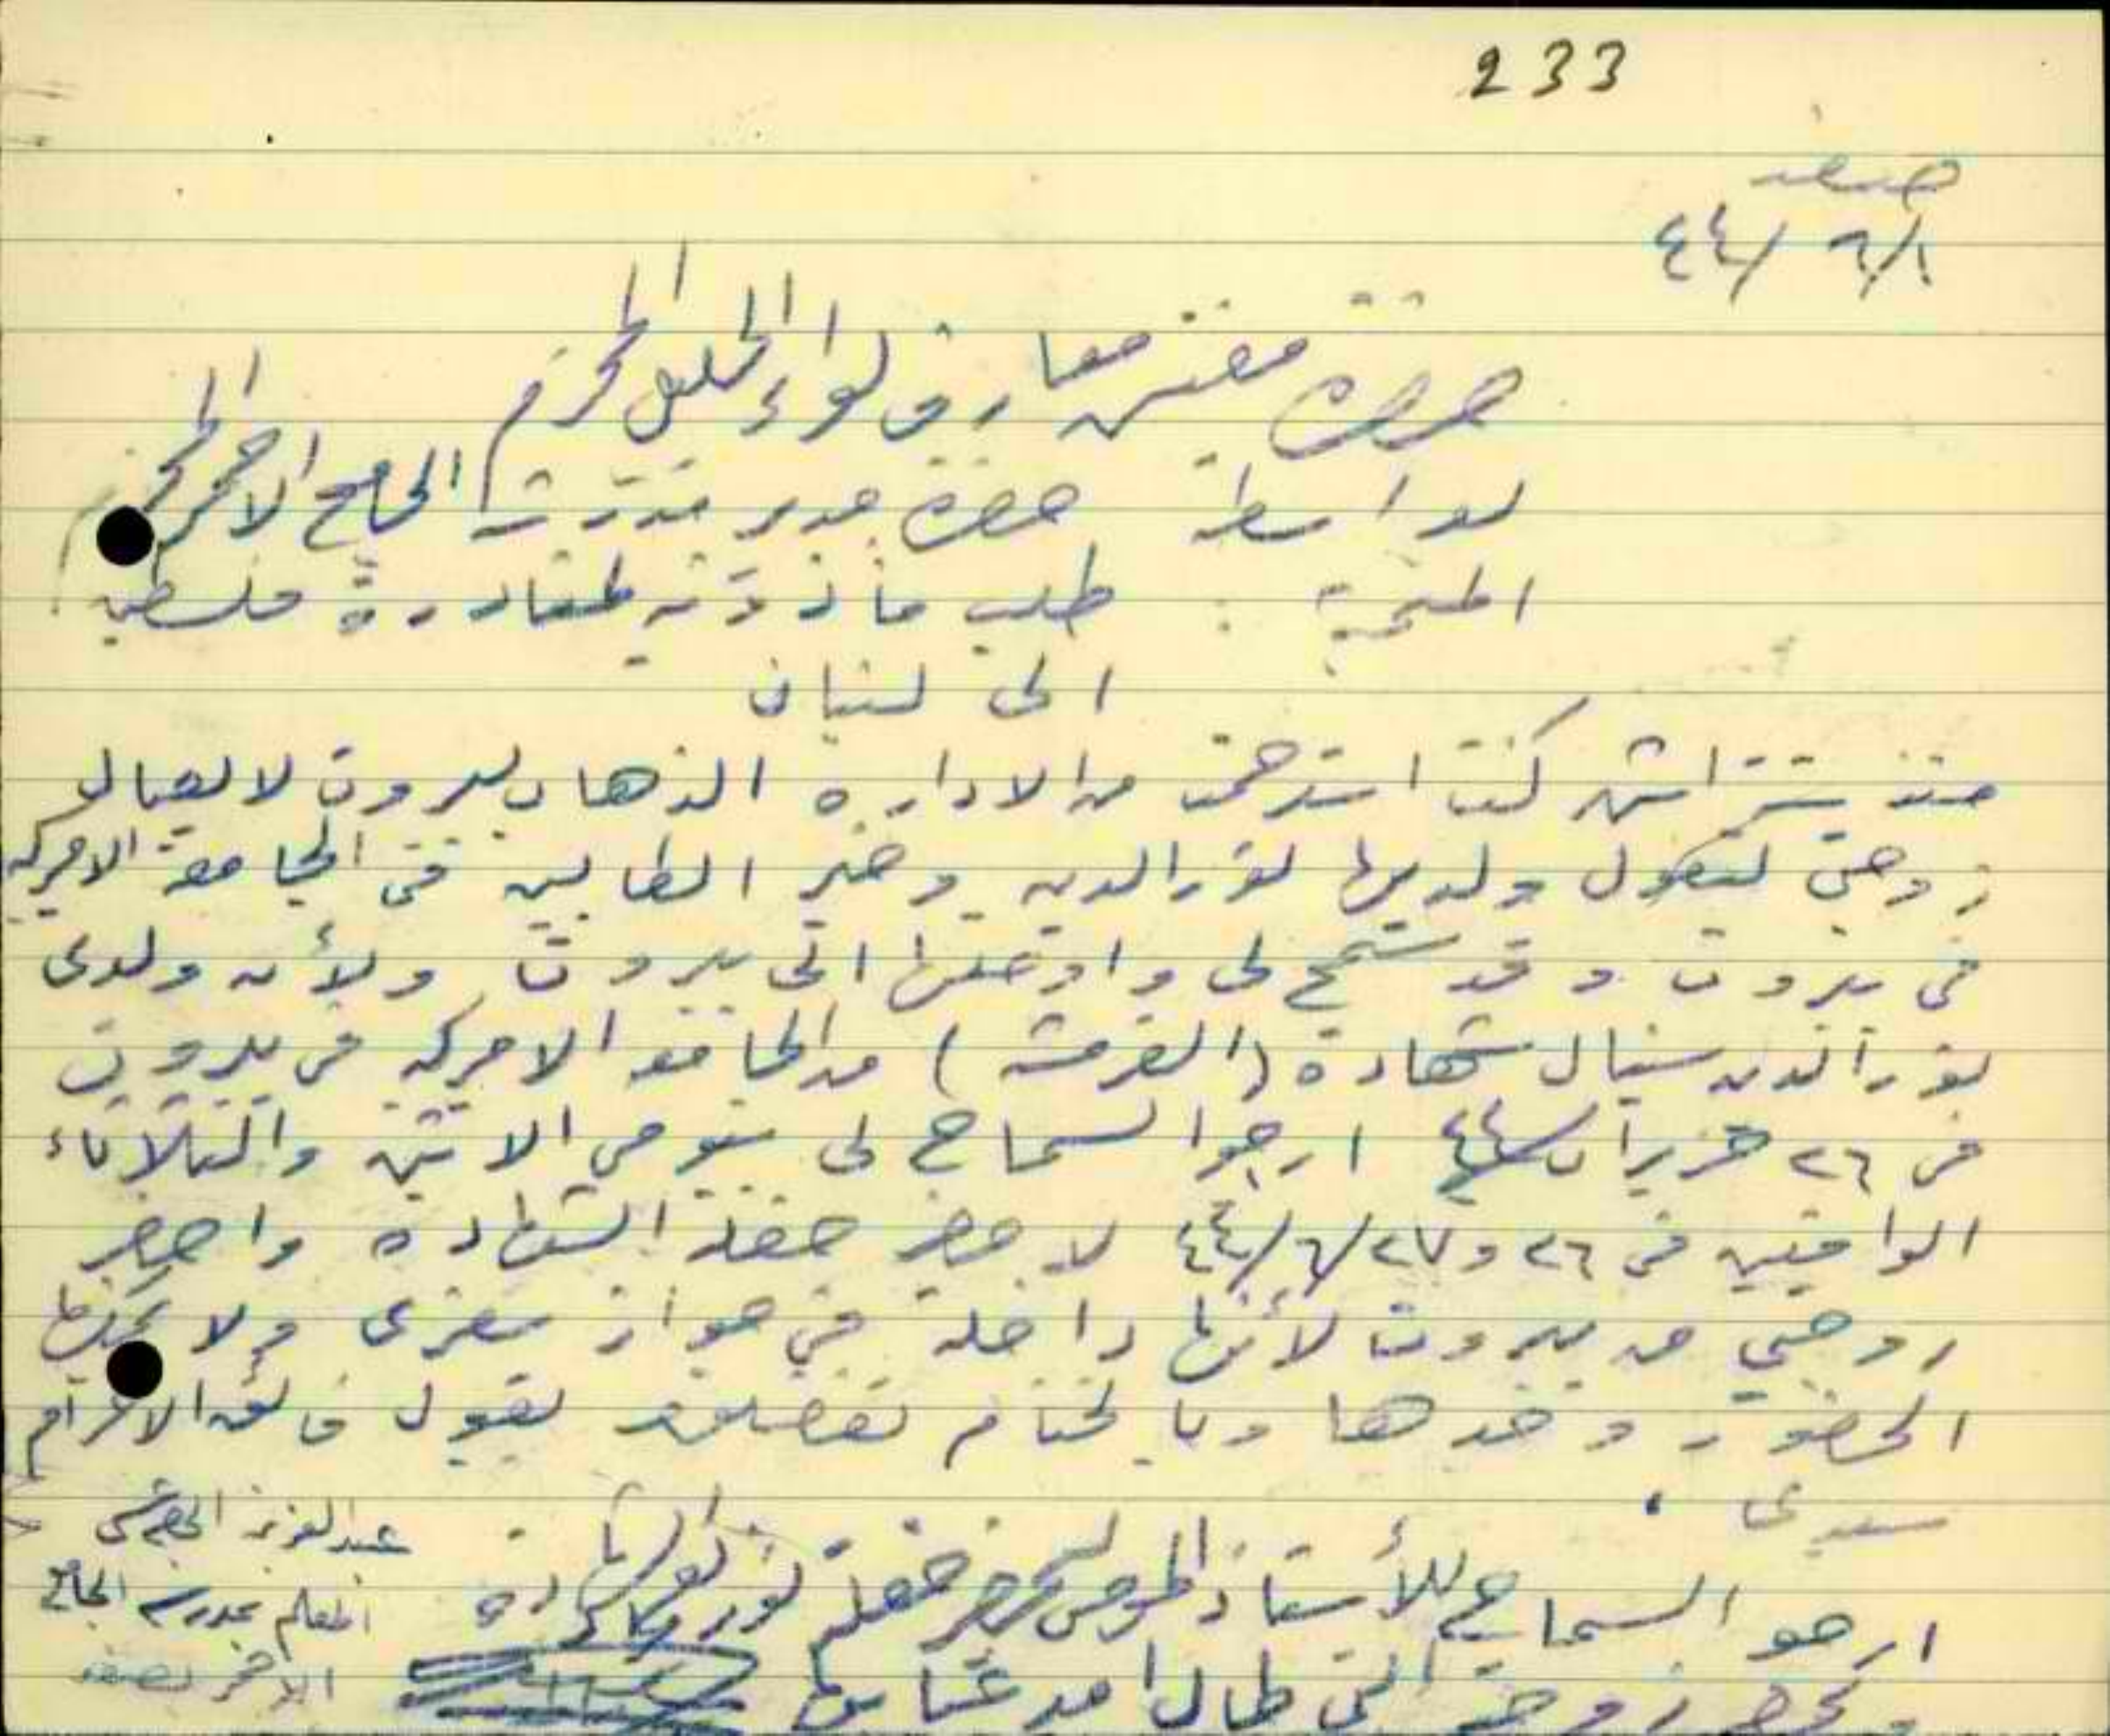 233
صفد
٤٤/٦/١
حضرة مفتش معارف لواء الجليل المحترم
بواسطة حضرة مدير مدرسة الجامع الاحمر المحترم
طلب مأذونية لمغادرة فلسطين
الى لبنان
منذ ستة اشهر كنت استرحمت من الادارة الذهاب لبيروت لايصال
زوجتي لتعول ولديها نور الدين وخير الطالبين في الجامعة الامركية
في بيروت وقد سمح لي واوصلتها الى بيروت ولأن ولدي
نور الدين سينال شهادة (الفرشمن) من الجامعة الامركية في بيروت
في ٢٦ حزيران ٤٤ ارجو السماح لي بيومي الاثنين والثلاثاء
الواقعين في ٢٦ و٢٧/٦/٤٤ لاحضر حفلة الشهادة واحضر
زوجتي من بيروت لأنها داخلة في جواز سفري ولا يمكنها
الحضور وحدها وبالختام تفضلوا بقبول فائق الاحترام
سيدي .
عبد العزيز
المعلم بمدرسة الجامع
الاحمر بصفد
ارجو السماح للأستاذ ليحضر حفلة نور
زوجته التي طال امد غيابها